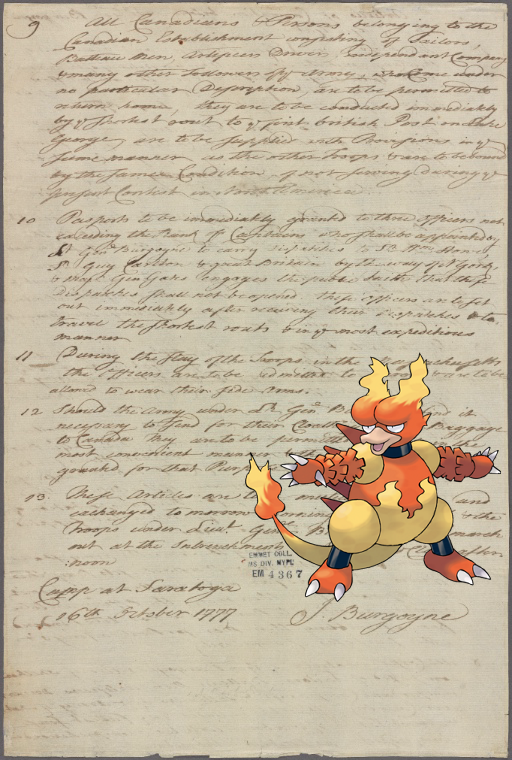 9 All Canadians & Persons belonging to the
Canadian Establishment consisting of Sailors,
Batteau Men, Artificers Drivers independant Companys
& many other followers of y Army, who come under
no particular Description, are to be permitted to
return home, they are to be conducted immediately
by y shortest rout to y first british Post on Lake
George, are to be supplied with Provisions in y
same manner as the other troops & are to be bound
by the same Condition of not serving during y
present Contest in North America
10 Pasports to be immediately granted to three officers not
exceeding the Rank of Captains who shall be appointed by
Lt Genl Burgoyne to carry dispatches to Sr Wm Howe,
Sr Guy Carleton & to great Britain by the way of New York
& Majr Genl Gates engages the public faith that these
dispatches shall not be opened these officers are to set
out immediately after receiving their dispatches & to
travel the shortest routs & in y most expeditious
manner
11 During the stay of the Troops in the
the officers are to be admitted to are to be
allowed to wear their side Arms.
12 Should the Army under Lt Genl find it
necessary to send for their Cloathing Baggage
to Canada they are to be permitted
most convenient manner
granted for that Purpose
13 These Articles are to and
exchanged to morrow morning & the
Troops under Lieut Genl march
out at the afternoon
noon
Camp at Saratoga
16th October 1777
J Burgoyne
EMMET COLL.
MS DIV. NYPL
EM 4367